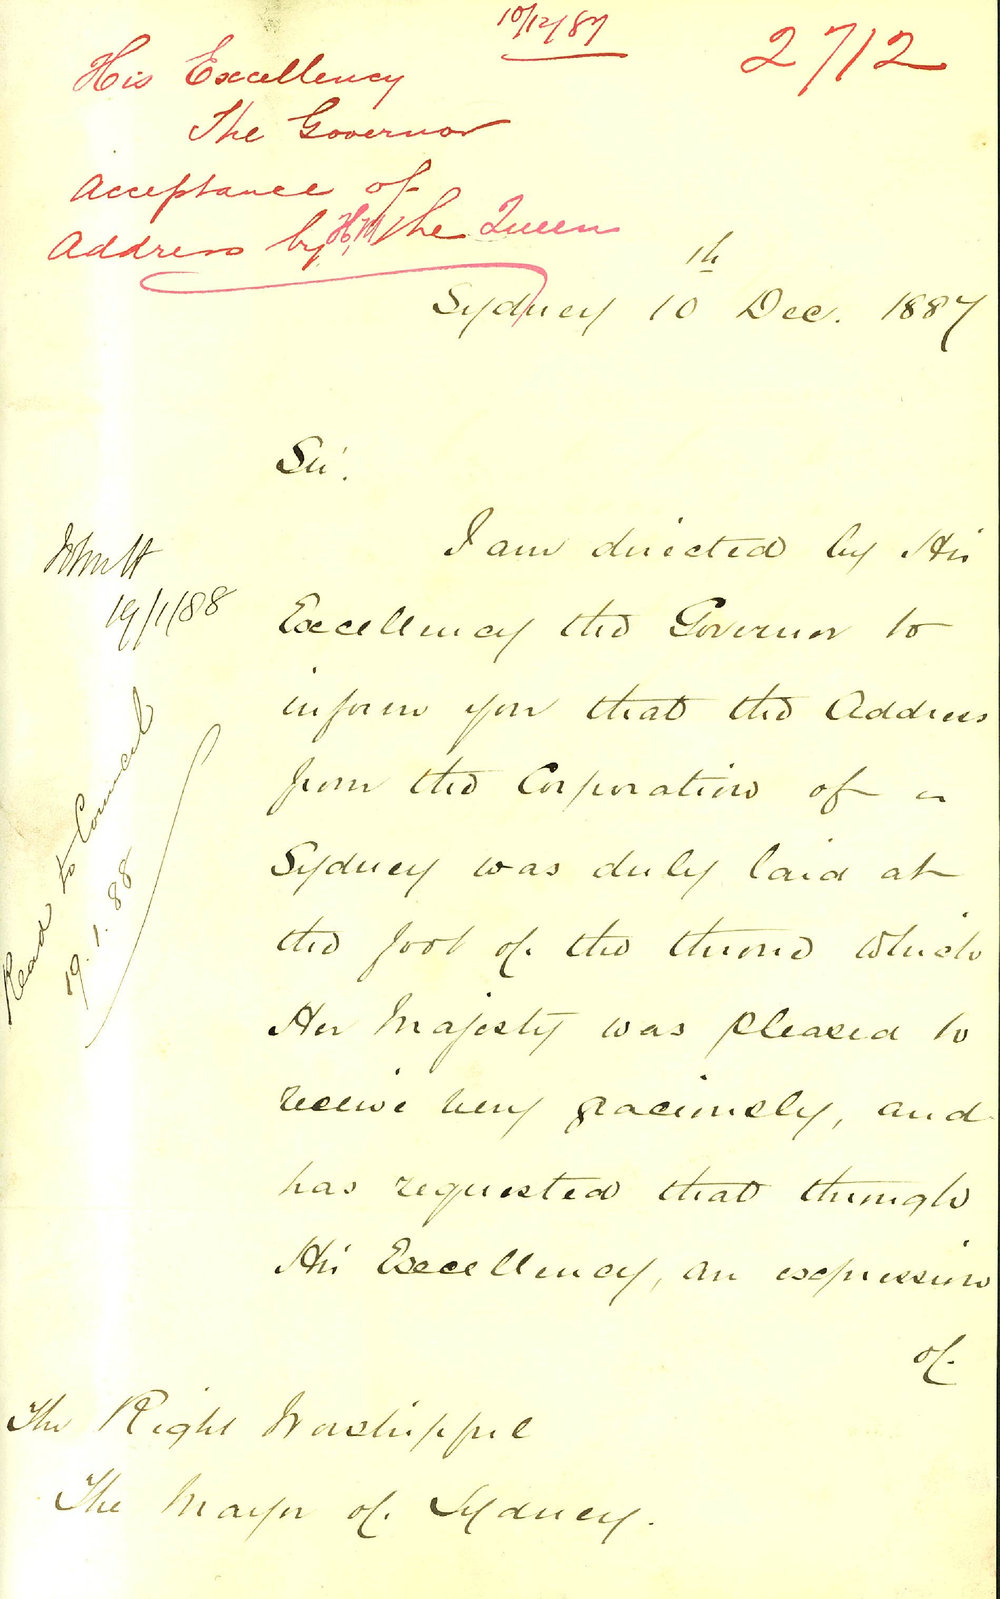 10/12/87
2712
His Excellency
The Governor
Acceptance of
Address by H.M. the Queen
Sydney 10th Dec. 1887
Sir.
I am directed by His
Excellency the Governor to
inform you that the Address
from the Corporation of
Sydney was duly laid at
the foot of the throne which
Her Majesty was pleased to
receive very graciously, and
has requested that through
His Excellency, an expression
of
19/1/88
Read to Council
19.1.88
The Right Worshipful
The Mayor of Sydney.